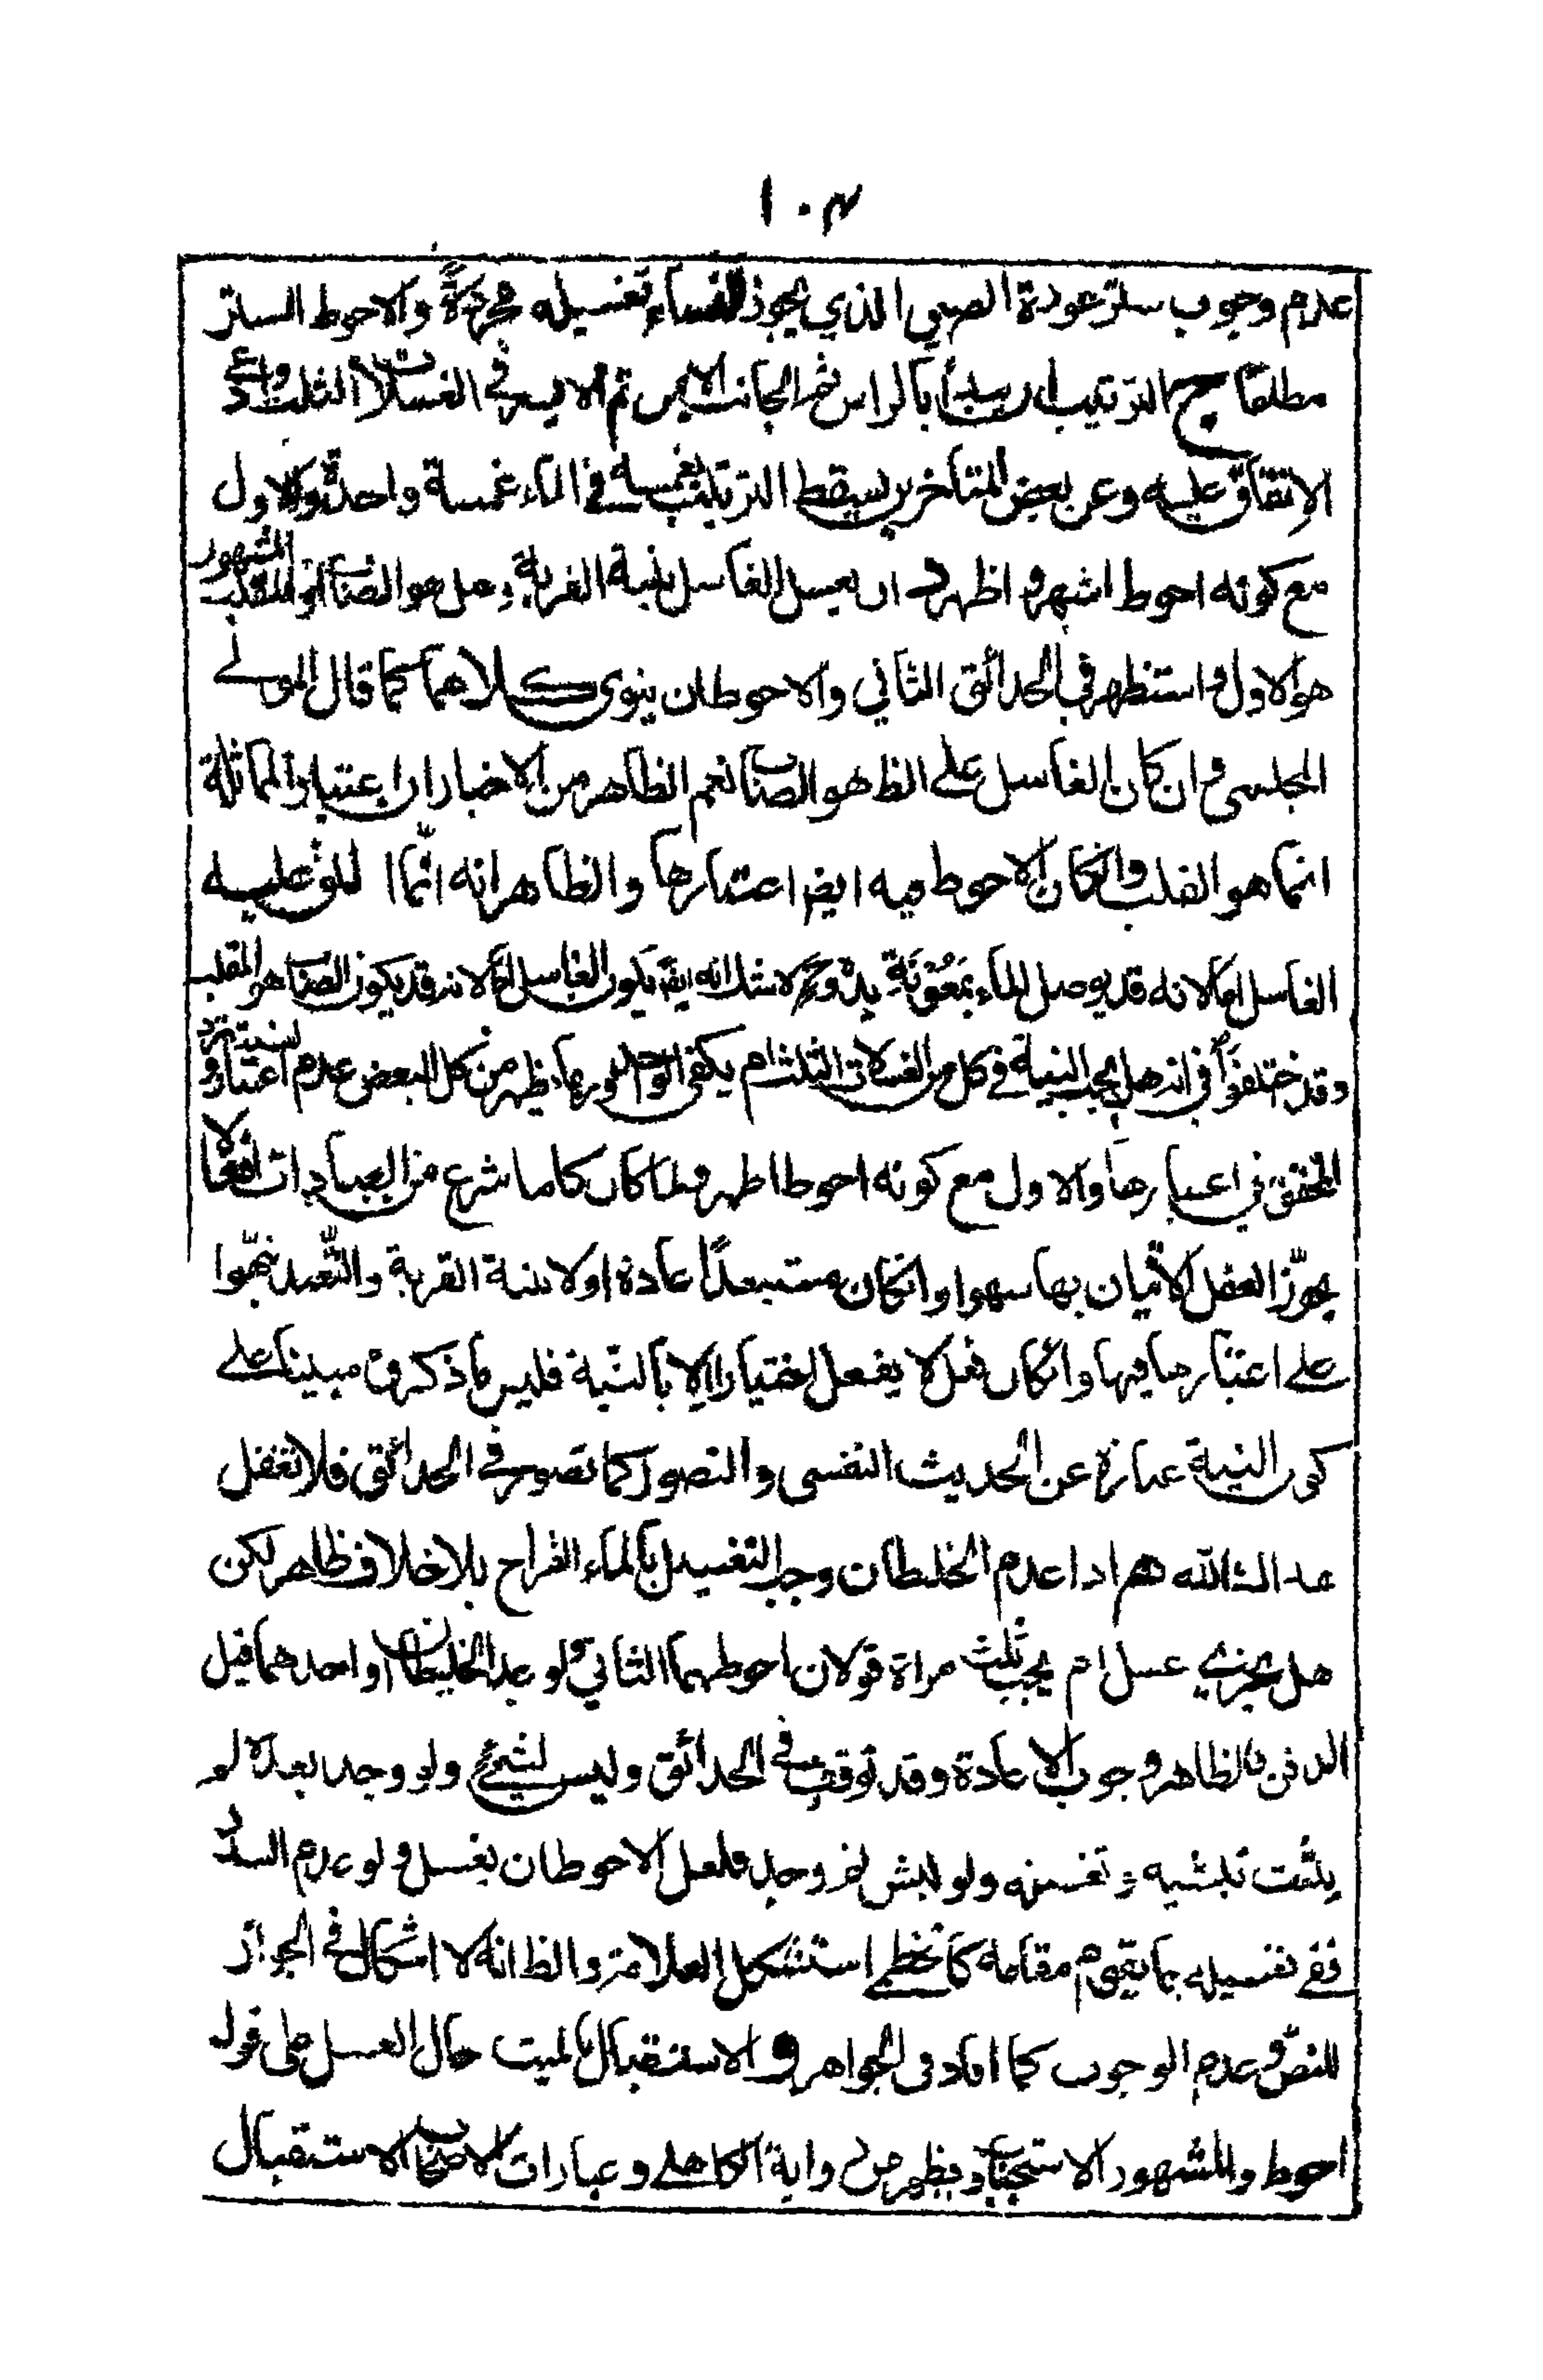 ١٠٣
عدم وجوب ستر عورة الصبي الذي يجوز للنساء تغسيله مجردة والاحوط الستر
مطلقا ج الترتيب بالراس ثم الجانب الايمن ثم الايسر في الغسلات الثلث وادعى
الاتفاق عليه وعن بعض المتأخرين سقط الترتيب بغمسه في الماء غمسة واحدة والاول
مع كونه احوط اشهر واظهر د ان يغسل الغاسل بنية القربة وهل هو الصاب او المقلب المشهور
هو الاول واستظهر في الحدائق الثاني والاحوط ان ينوى كلاهما كما قال المولى
المجلسي وان كان الغاسل على الظ هو الصاب نعم الظاهر من الاخبار ان اعتبار المماثلة
انما هو المقلب وانكان الاحوط فيه ايضا اعتبارها والظاهر انه انما عليه
الغاسل اما لانه قد يوصل الماء بمعونة يده وح لا شك انه ايضا يكون الغاسل اما لانه قد يكون الصاب هو المقلب
وقد اختلفوا في انه هل يجب النية في كل من الغسلات الثلث ام يكفى الواحد ظهر من كل البعض عدم اعتباره
المحقق في اعتبارها والاول مع كونه احوط اظهر ولما كان كلما شرع من العبادات افعالا
يجوز العقل الاتيان بها سهوا وانكان مستبعدا عادة او لا بنية القربة والتعبد نبهوا
على اعتبارها فيها وانكان فعل لا يفعل اختيارا الا بالنية فليس ما ذكروه مبينا على
كون النية عبارة عن الحديث النفسى والتصور كما تصور في الحدائق فلا تغفل
هم اذا عدم الخليطان وجب التغسيل بالماء القراح بلا خلاف ظاهر لكن
هل يجزي غسل ام يجب ثلث مراة قولان احوطهما الثاني ولو وجد الخليطان او احدهما قبل
الدفن فالظاهر وجوب الاعادة وقد توقف في الحدائق وليس لشيئ ولو وجد بعده لو
يثبت ولو نبش وجد فلعل الاحوط ان يغسل ولو عدم السدر
ففى تغسيله بما يقوم مقامه كالخطمي استشكل العلامة والظ انه لا اشكال في الجواز
للنص وعدم الوجوب كما افاد في الجواهر و الاستقبال بالميت حال الغسل على قول
احوط والمشهور الاستحباب ويظهر من رواية الكاهلى وعبارات الاصحاب الاستقبال